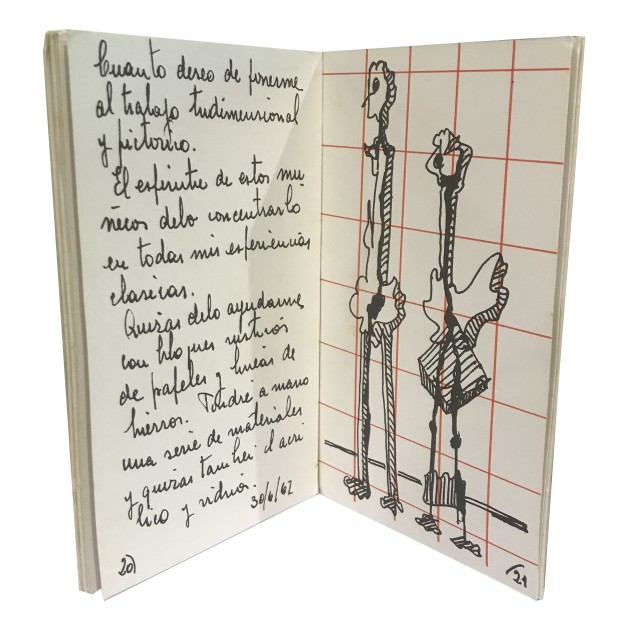 Cuanto deseo de ponerme
al trabajo tridimensional
y pictorico.
El espiritu de estos mu
ñecos debo concentrarlo
en todas mis experiencias
clasicas.
Quizas debo ayudarme
con bloques rusticos
de papeles y lineas de
hierros. Tendré a mano
una serie de materiales
y quizas tambien el acri
lico y vidrios.
30/6/62
20)
/21